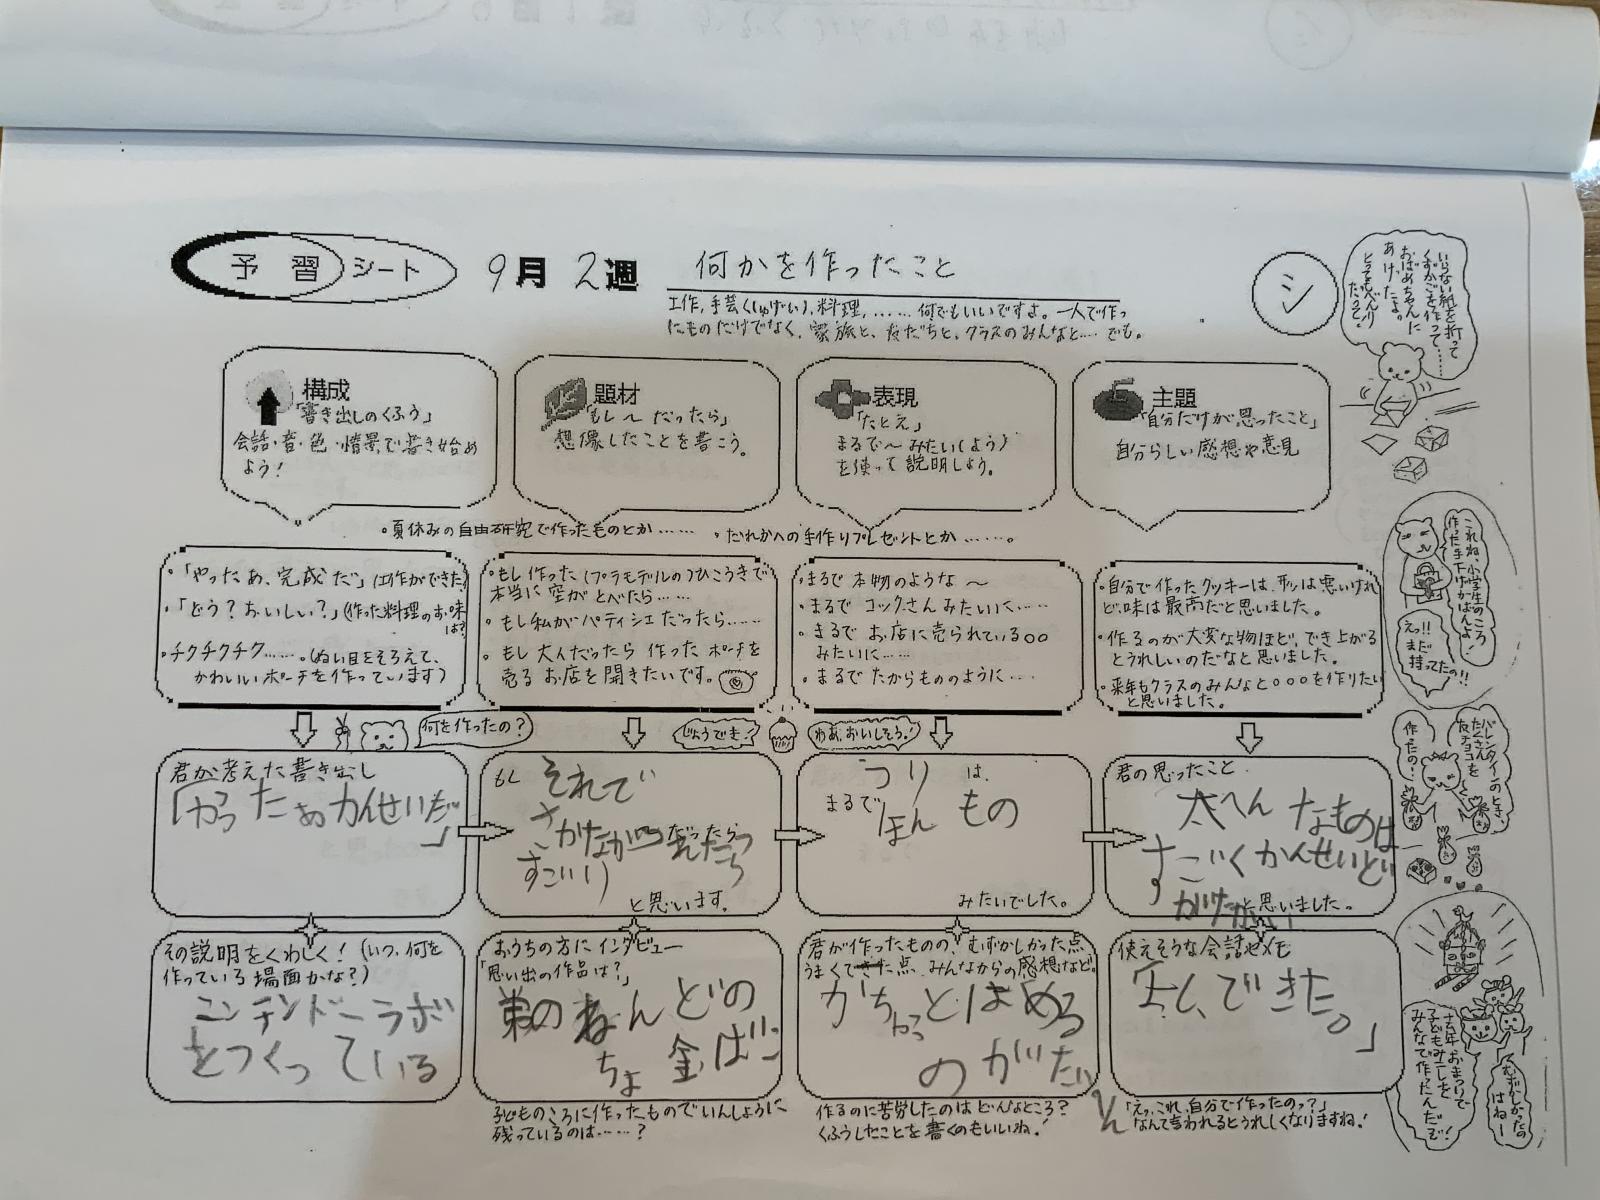 予習シート 9月2週 何かを作ったこと シ
工作,手芸(しゅげい),料理,……何でもいいですよ。一人で作っ
たものだけでなく、家族と、友だちと、クラスのみんなと……でも。
構成
「書き出しのくふう」
会話・音・色・情景で書き始め
よう!
題材
「もし〜だったら」
想像したことを書こう。
表現
「たとえ」
まるで〜みたい(よう)
を使って説明しよう。
主題
「自分だけが思ったこと」
自分らしい感想や意見
・夏休みの自由研究で作ったものとか…… ・だれかへの手作りプレゼントとか……。
・「やったあ、完成だ」(工作ができた)
・「どう?おいしい?」(作った料理のお味は?)
・チクチクチク……。(ぬい目をそろえて、
かわいいポーチを作っています)
・もし作った(プラモデルの)ひこうきで
本当に空がとべたら……
・もし私がパティシエだったら……
・もし大人だったら作ったポーチを
売るお店を開きたいです。
・まるで本物のような〜
・まるでコックさんみたいに……
・まるでお店に売られている○○
みたいに……
・まるでたからもののように……
・自分で作ったクッキーは、形は悪いけれ
ど、味は最高だと思いました。
・作るのが大変な物ほど、でき上がる
とうれしいのだなと思いました。
・来年もクラスのみんなと○○○を作りたい
と思いました。
何を作ったの?
じょうでき!
わあ、おいしそう!
君が考えた書き出し
「やったぁかんせいだ」
もし それで
さかながつれたら
すごい
と思います。
つりは、
まるで ほんもの
みたいでした。
君の思ったこと
大へんなものは
すごくかんせいど
がけたかい
と思いました。
その説明をくわしく!(いつ、何を
作っている場面かな?)
ニンテンドーラボ
をつくっている
おうちの方にインタビュー
「思い出の作品は?」
弟のねんどの
ちょ金ばこ
子どものころに作ったものでいんしょうに
残っているのは……?
君が作ったものの、むずかしかった点
うまくできた点、みんなからの感想など。
がちゃっとはめる
のがたいへん
作るのに苦労したのはどんなところ?
くふうしたことを書くのもいいね!
使えそうな会話やメモ
できた。」
「えっ、これ、自分で作ったのっ?」
なんて言われるとうれしくなりますね!
いらない紙を折って
くずかごを作って……
おばあちゃんに
あげったよ。
とってもべんり
だって。
これね、小学生のころ
作った手下げかばんよ!
えっ!!
まだ
持ってたの!!
バレンタインのとき、
たださん
友チョコを
作ったの!
去年おまつりで
子どもみこしを
みんなで作ったんだぞ!
むずかしかったの
はねー